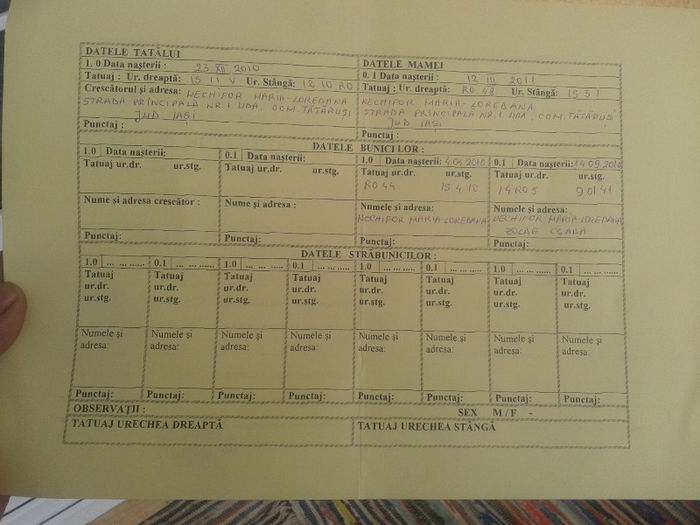 DATELE TATĂLUI
1. 0 Data nașterii : 23 XII 2010
Tatuaj : Ur. dreaptă: 15 11 V Ur. Stângă: 12 10 RO
Crescătorul și adresa: NECHIFOR MARIA-LOREDANA
STRADA PRINCIPALĂ NR 1 UDA, COM. TĂTĂRUȘI
JUD IAȘI
Punctaj :
DATELE MAMEI
0. 1 Data nașterii : 12 III 2011
Tatuaj : Ur. dreaptă: RO 48 Ur. Stângă: 15 3 1
NECHIFOR MARIA-LOREDANA
STRADA PRINCIPALĂ NR 1 UDA, COM. TĂTĂRUȘI
JUD IAȘI
Punctaj :
DATELE BUNICILOR :
1.0 Data nașterii: 0.1 Data nașterii: 1.0 Data nașterii: 4.05.2010 0.1 Data nașterii: 14.09.2010
Tatuaj ur.dr. ur.stg. Tatuaj ur.dr. ur.stg. Tatuaj ur.dr. ur.stg. Tatuaj ur.dr. ur.stg.
RO 44 15 4 10 14 RO 5 90141
Nume și adresa crescător : Nume și adresa : Numele și adresa: Numele și adresa:
NECHIFOR MARIA-LOREDANA NECHIFOR MARIA-LOREDANA
CSABA
Punctaj: Punctaj: Punctaj: Punctaj:
DATELE STRĂBUNICILOR :
1.0 ... ... ...... 0.1 ... ... ...... 1.0 ... ... ...... 0.1 ... ... ...... 1.0 ... ... ...... 0.1 ... ... ...... 1.0 ... ... ...... 0.1 ... ... ......
Tatuaj Tatuaj Tatuaj Tatuaj Tatuaj Tatuaj Tatuaj Tatuaj
ur.dr. ur.dr. ur.dr. ur.dr. ur.dr. ur.dr. ur.dr. ur.dr.
ur.stg. ur.stg. ur.stg. ur.stg. ur.stg. ur.stg. ur.stg. ur.stg.
Numele și Numele și Numele și Numele și Numele și Numele și Numele și Numele și
adresa: adresa: adresa: adresa: adresa: adresa: adresa: adresa:
Punctaj: Punctaj: Punctaj: Punctaj: Punctaj: Punctaj: Punctaj: Punctaj:
OBSERVAȚII : SEX M / F -
TATUAJ URECHEA DREAPTĂ TATUAJ URECHEA STÂNGĂ